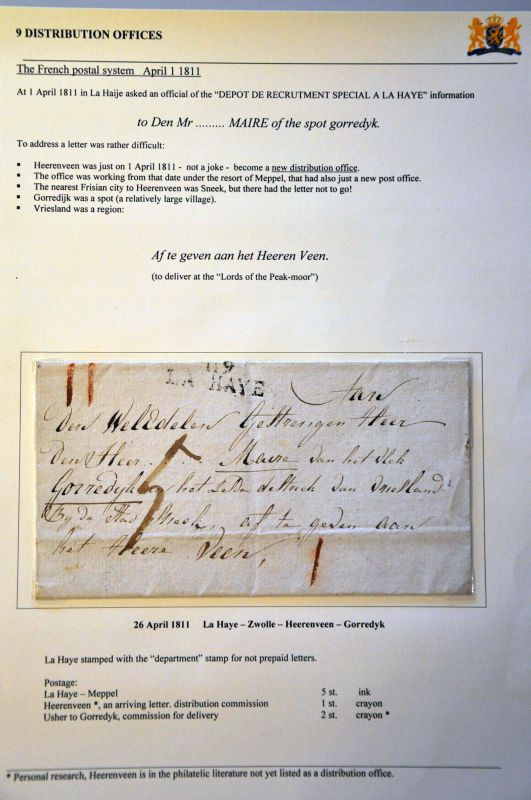 9 DISTRIBUTION OFFICES
The French postal system April 1 1811
At 1 April 1811 in La Haije asked an official of the “DEPOT DE RECRUTMENT SPECIAL A LA HAYE” information
to Den Mr ......... MAIRE of the spot gorredyk.
To address a letter was rather difficult:
▪ Heerenveen was just on 1 April 1811 - not a joke - become a new distribution office.
▪ The office was working from that date under the resort of Meppel, that had also just a new post office.
▪ The nearest Frisian city to Heerenveen was Sneek, but there had the letter not to go!
▪ Gorredijk was a spot (a relatively large village).
▪ Vriesland was a region:
Af te geven aan het Heeren Veen.
(to deliver at the “Lords of the Peak-moor”)
119
LA HAYE
Aan
Den WelEdelen Gestrengen Heer
Den Heer .... Maire van het vlek
Gorredyk in het district van Vriesland
By de Stad Sneek, af te geven aan
het Heere Veen,
5
26 April 1811 La Haye – Zwolle – Heerenveen – Gorredyk
La Haye stamped with the “department” stamp for not prepaid letters.
Postage:
La Haye – Meppel 5 st. ink
Heerenveen *, an arriving letter. distribution commission 1 st. crayon
Usher to Gorredyk, commission for delivery 2 st. crayon *
* Personal research, Heerenveen is in the philatelic literature not yet listed as a distribution office.